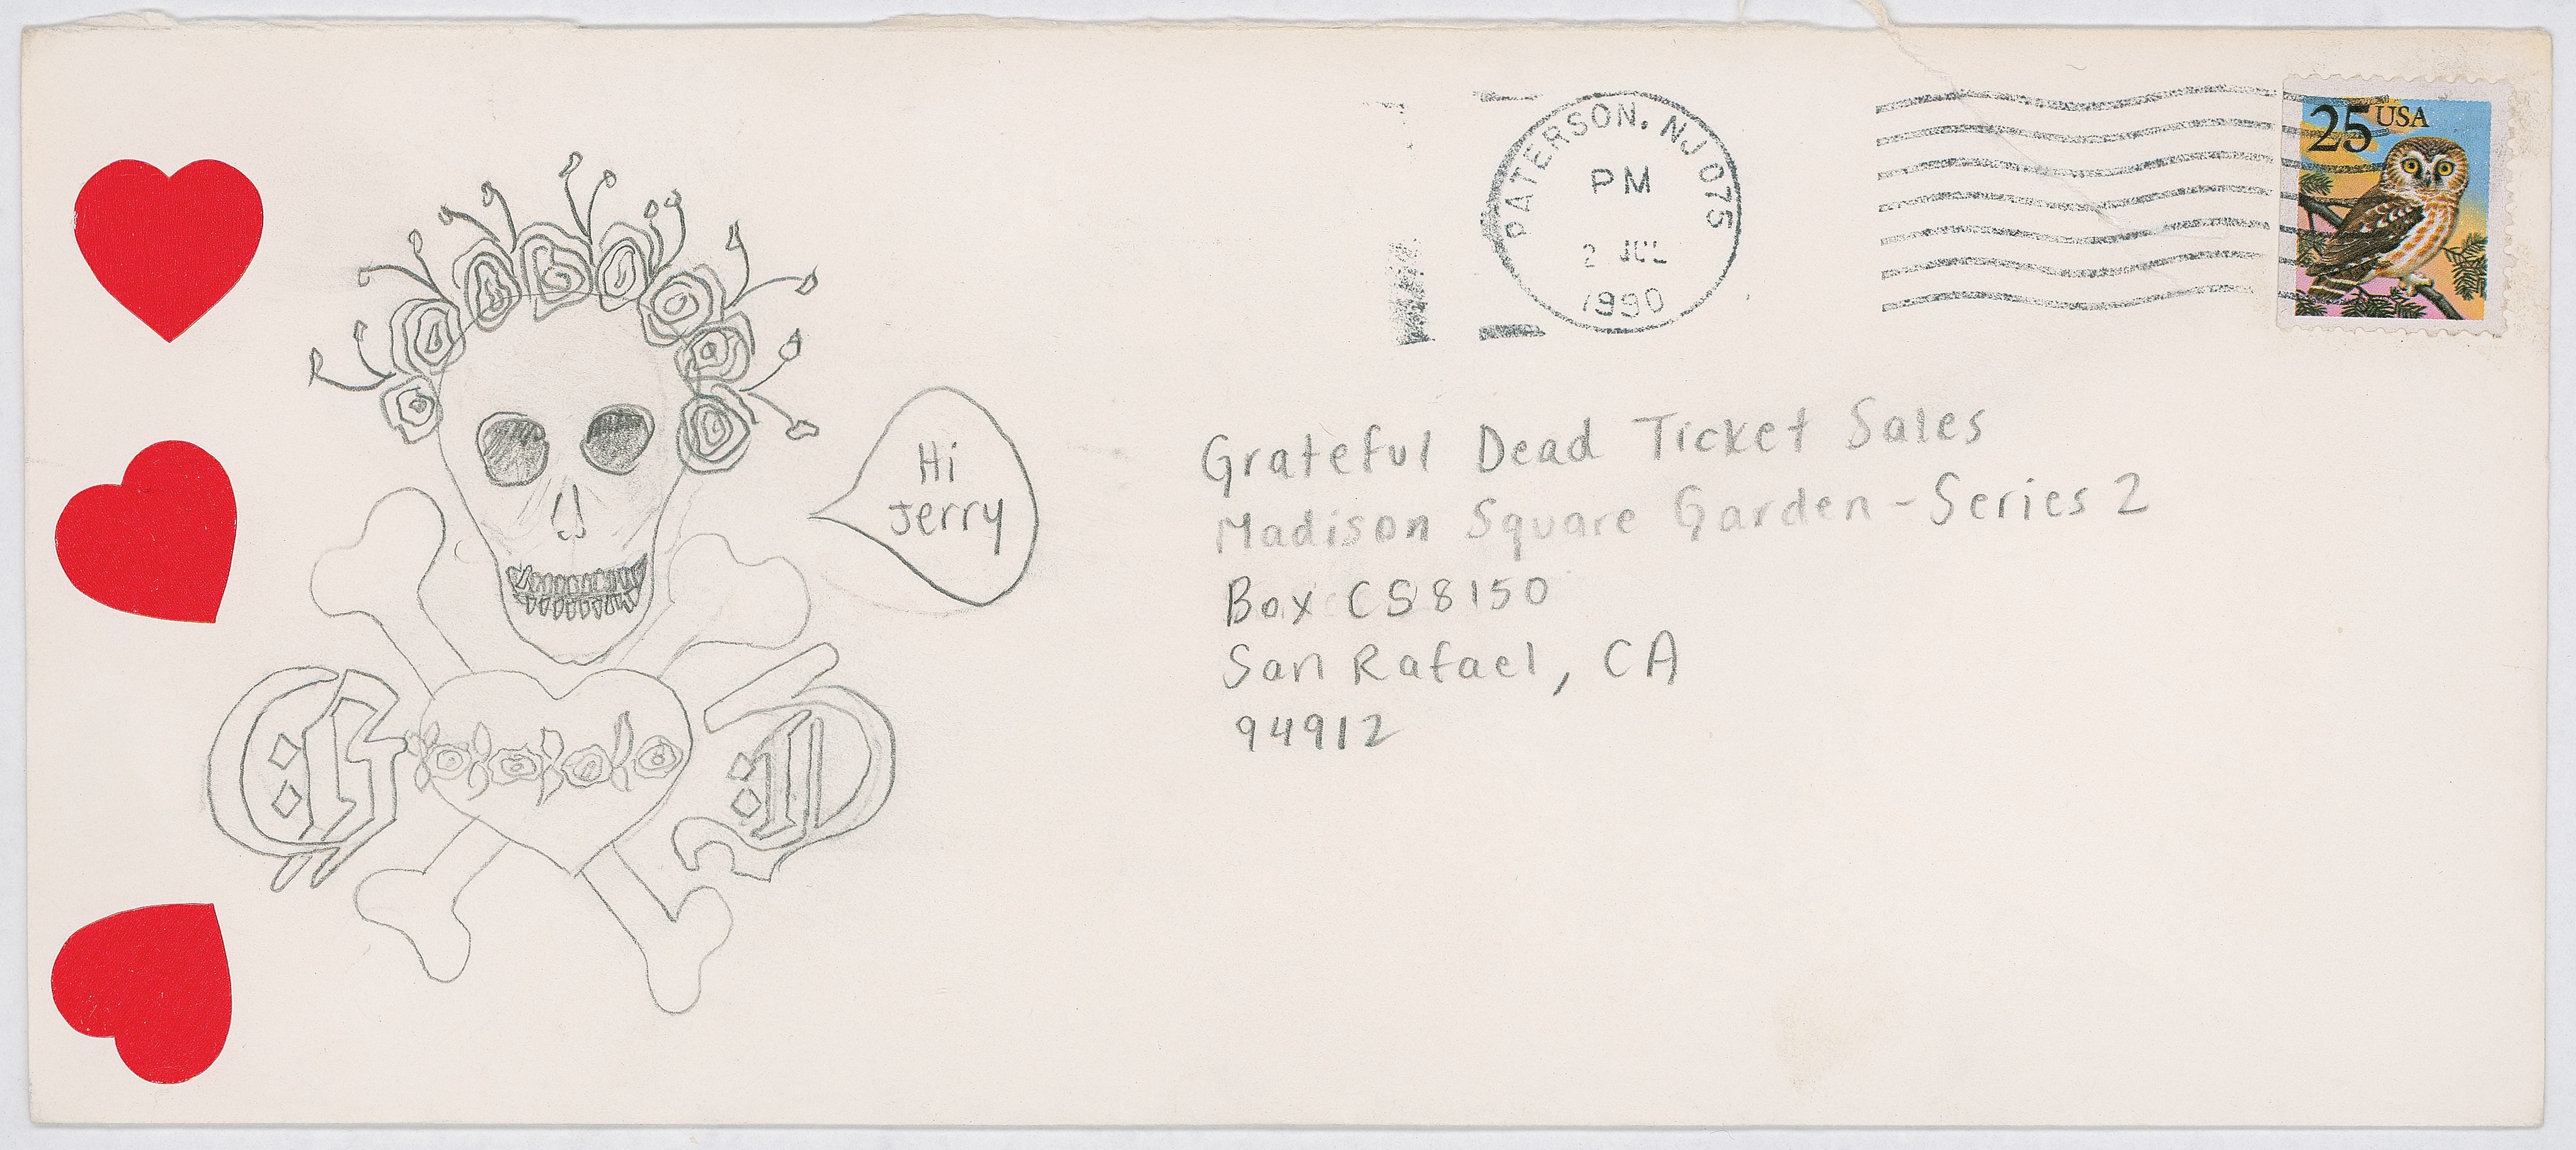 PATERSON, NJ 075
PM
2 JUL
1990
25 USA
Hi
Jerry
G D
Grateful Dead Ticket Sales
Madison Square Garden - Series 2
Box CS8150
San Rafael, CA
94912